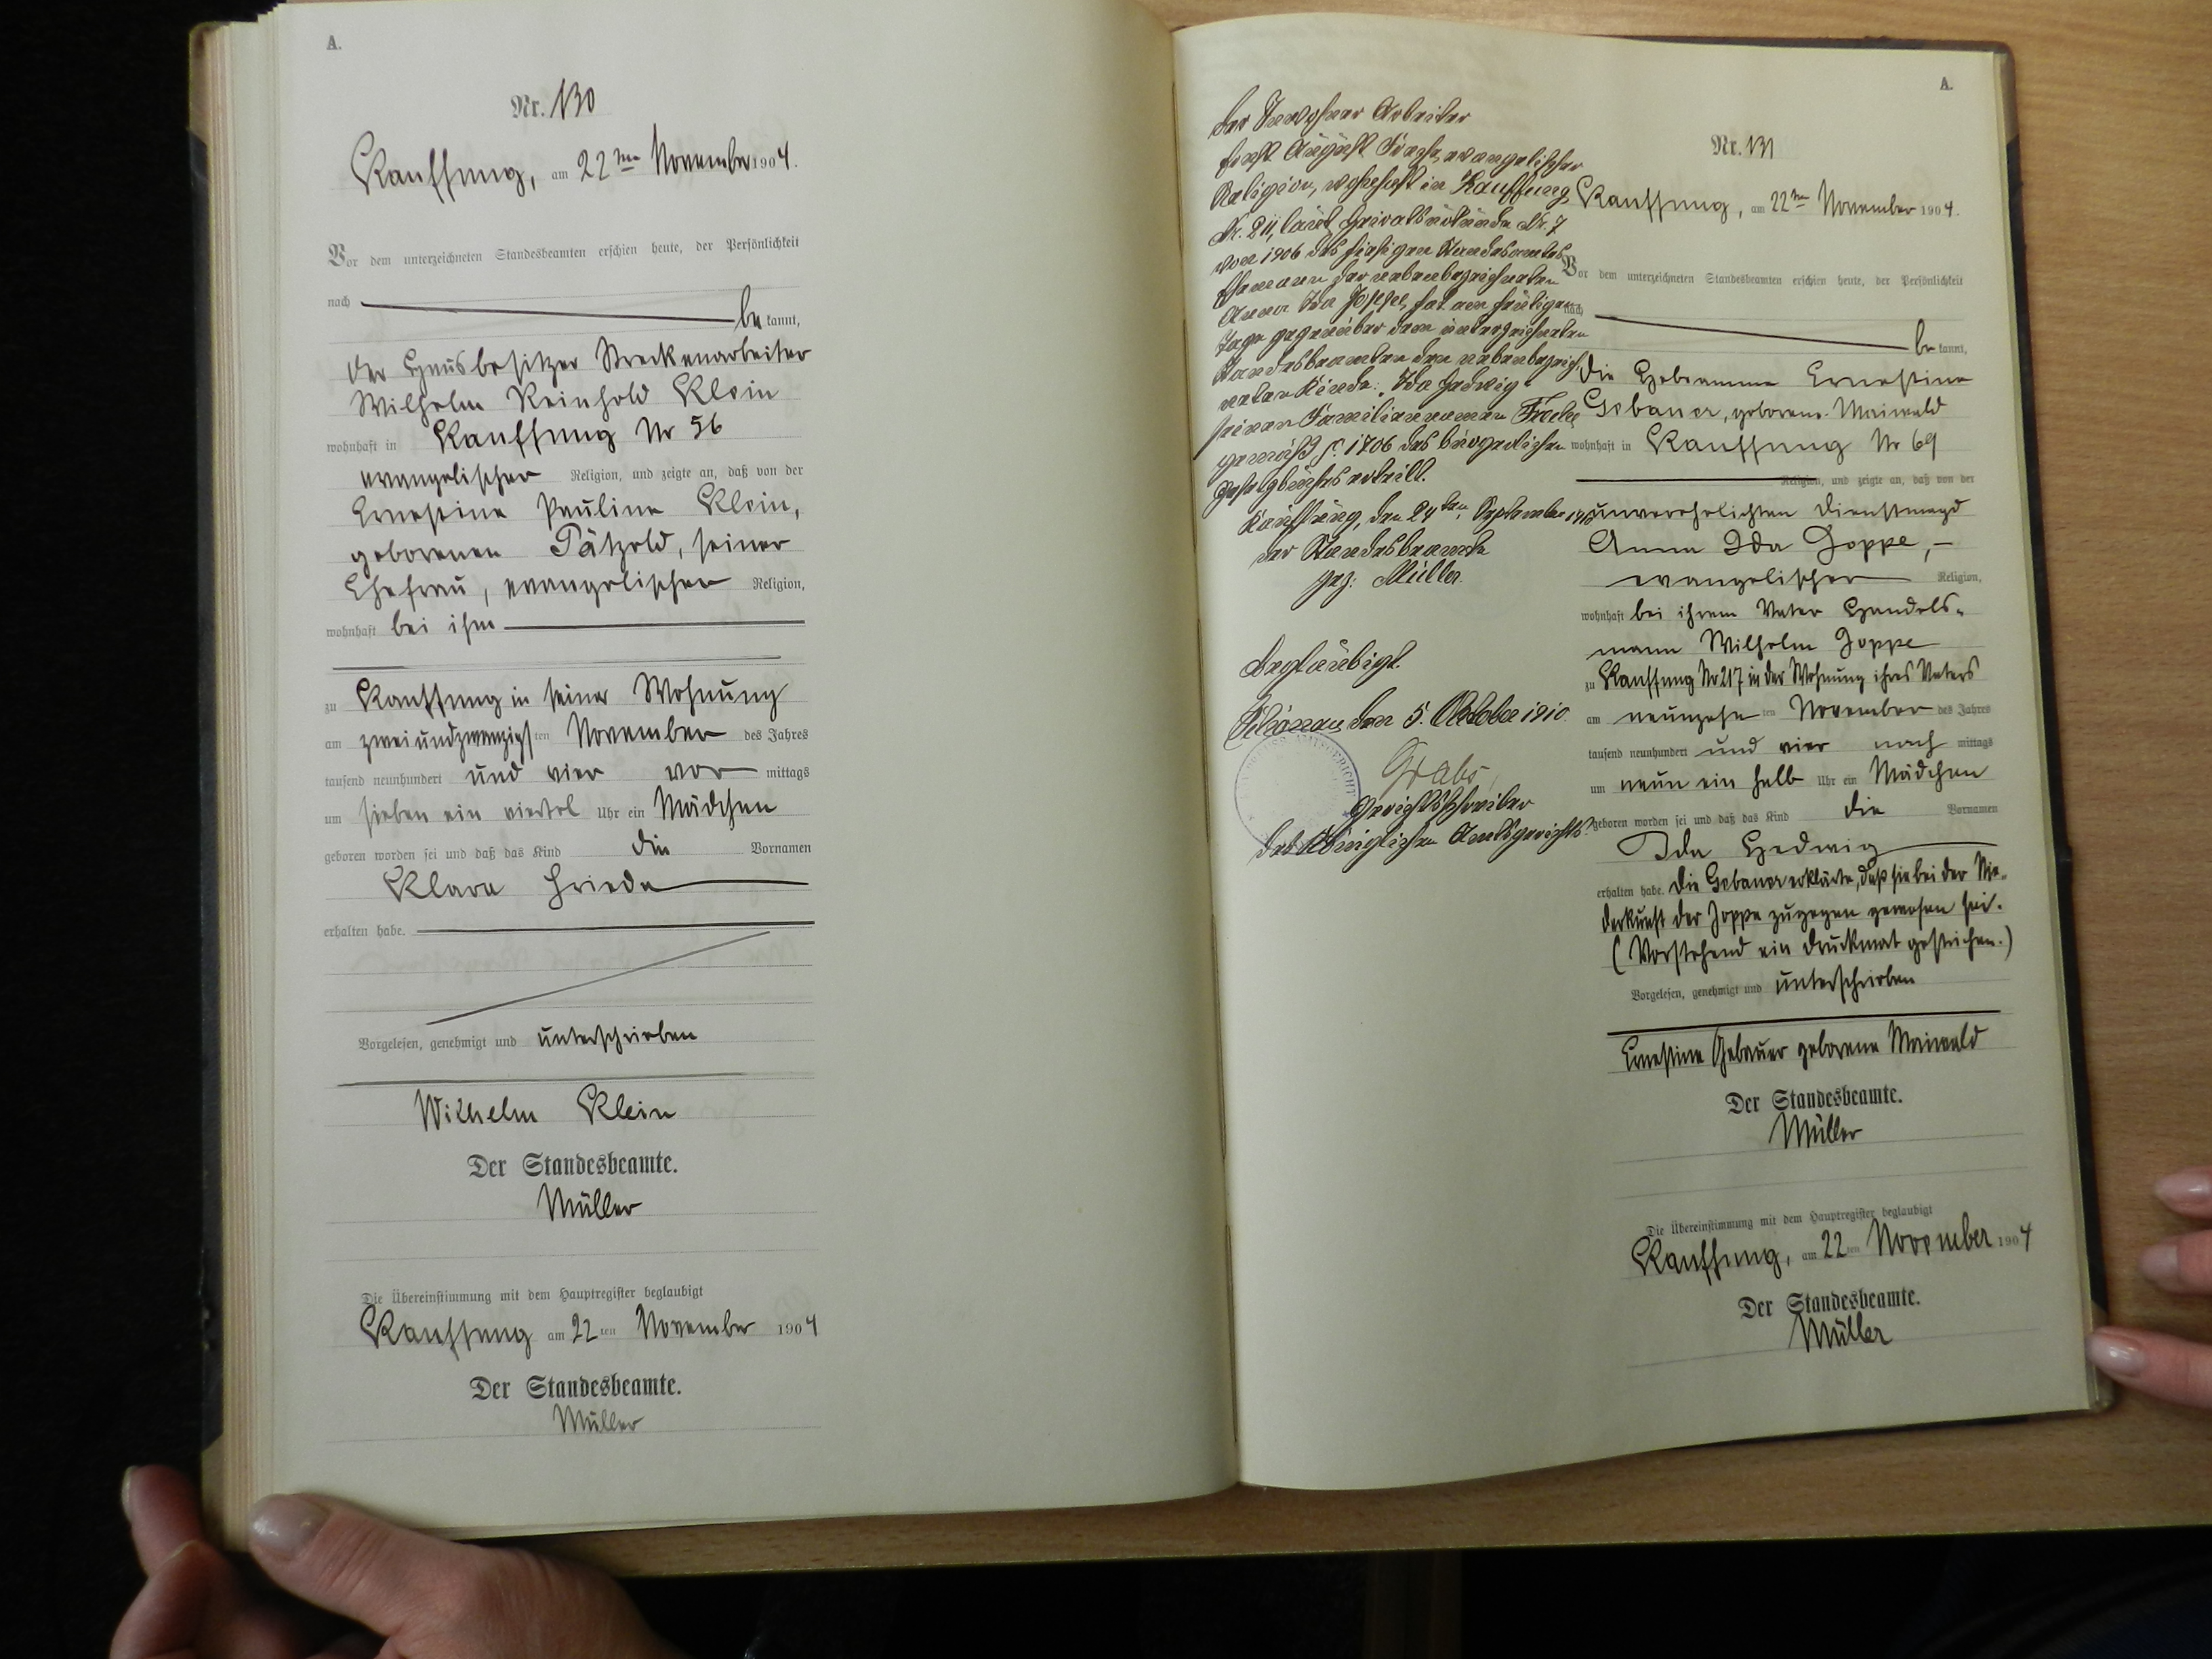 A.
Nr. 130
Kauffung, am 22ten November 1904.
Vor dem unterzeichneten Standesbeamten erschien heute, der Persönlichkeit
nach be kannt,
der Hausbesitzer Streckenarbeiter
Wilhelm Reinhold Klein
wohnhaft in Kauffung Nr 56
evangelischer Religion, und zeigte an, daß von der
Ernestine Pauline Klein,
geborenen Pätzold, seiner
Ehefrau, evangelischer Religion,
wohnhaft bei ihm
zu Kauffung in seiner Wohnung
am zweiundzwanzigsten November des Jahres
tausend neunhundert und vier vor mittags
um sieben ein viertel Uhr ein Mädchen
geboren worden sei und daß das Kind die Vornamen
Klara Frieda
erhalten habe.
Vorgelesen, genehmigt und unterschrieben
Wilhelm Klein
Der Standesbeamte.
Müller
Die Übereinstimmung mit dem Hauptregister beglaubigt
Kauffung am 22ten November 1904
Der Standesbeamte.
Müller
Der Arbeiter
August evangelischer
Religion, wohnhaft in Kauffung
Nr. 211, laut Heiratsurkunde Nr. 7
von 1906 des hiesigen Standesamtes
Ehemann der nebenbezeichneten
Anna Ida Joppe, hat am heutigen
Tage gegenüber dem unterzeichneten
Standesbeamten dem nebenbezeich-
neten Kinde: Ida Hedwig
seinen Familiennamen
gemäß §. 1706 des bürgerlichen
Gesetzbuches erteilt.
Kauffung, den 24ten September 1910
Der Standesbeamte
gez: Müller.
Beglaubigt.
Schönau, den 5. Oktober 1910.
Grabs
Gerichtsschreiber
des Königlichen Amtsgerichts.
A.
Nr. 131
Kauffung, am 22ten November 1904.
Vor dem unterzeichneten Standesbeamten erschien heute, der Persönlichkeit
nach be kannt,
die Hebamme Ernestine
Gebauer, geborene Maiwald
wohnhaft in Kauffung Nr 69
Religion, und zeigte an, daß von der
unverehelichten Dienstmagd
Anna Ida Joppe,
evangelischer Religion,
wohnhaft bei ihrem Vater Handels-
mann Wilhelm Joppe
zu Kauffung Nr 217 in der Wohnung ihres Vaters
am neunzehnten November des Jahres
tausend neunhundert und vier nach mittags
um neun ein halb Uhr ein Mädchen
geboren worden sei und daß das Kind die Vornamen
Ida Hedwig
erhalten habe. Die Gebauer erklärte, daß sie bei der Nie-
derkunft der Joppe zugegen gewesen sei.
(Vorstehend ein Druckwort gestrichen.)
Vorgelesen, genehmigt und unterschrieben
Ernestine Gebauer geborene Maiwald
Der Standesbeamte.
Müller
Die Übereinstimmung mit dem Hauptregister beglaubigt
Kauffung, am 22ten November 1904
Der Standesbeamte.
Müller